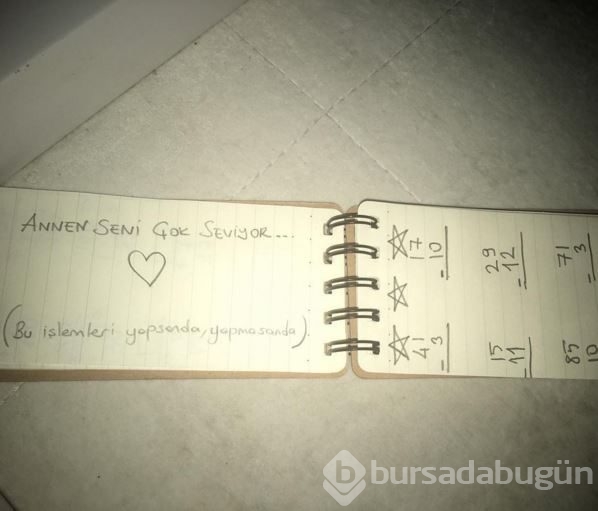 ANNEN SENİ ÇOK SEVİYOR...
(Bu işlemleri yapsanda, yapmasanda)
17
- 10
29
- 12
71
- 3
41
- 3
15
- 11
85
10
bursadabugün